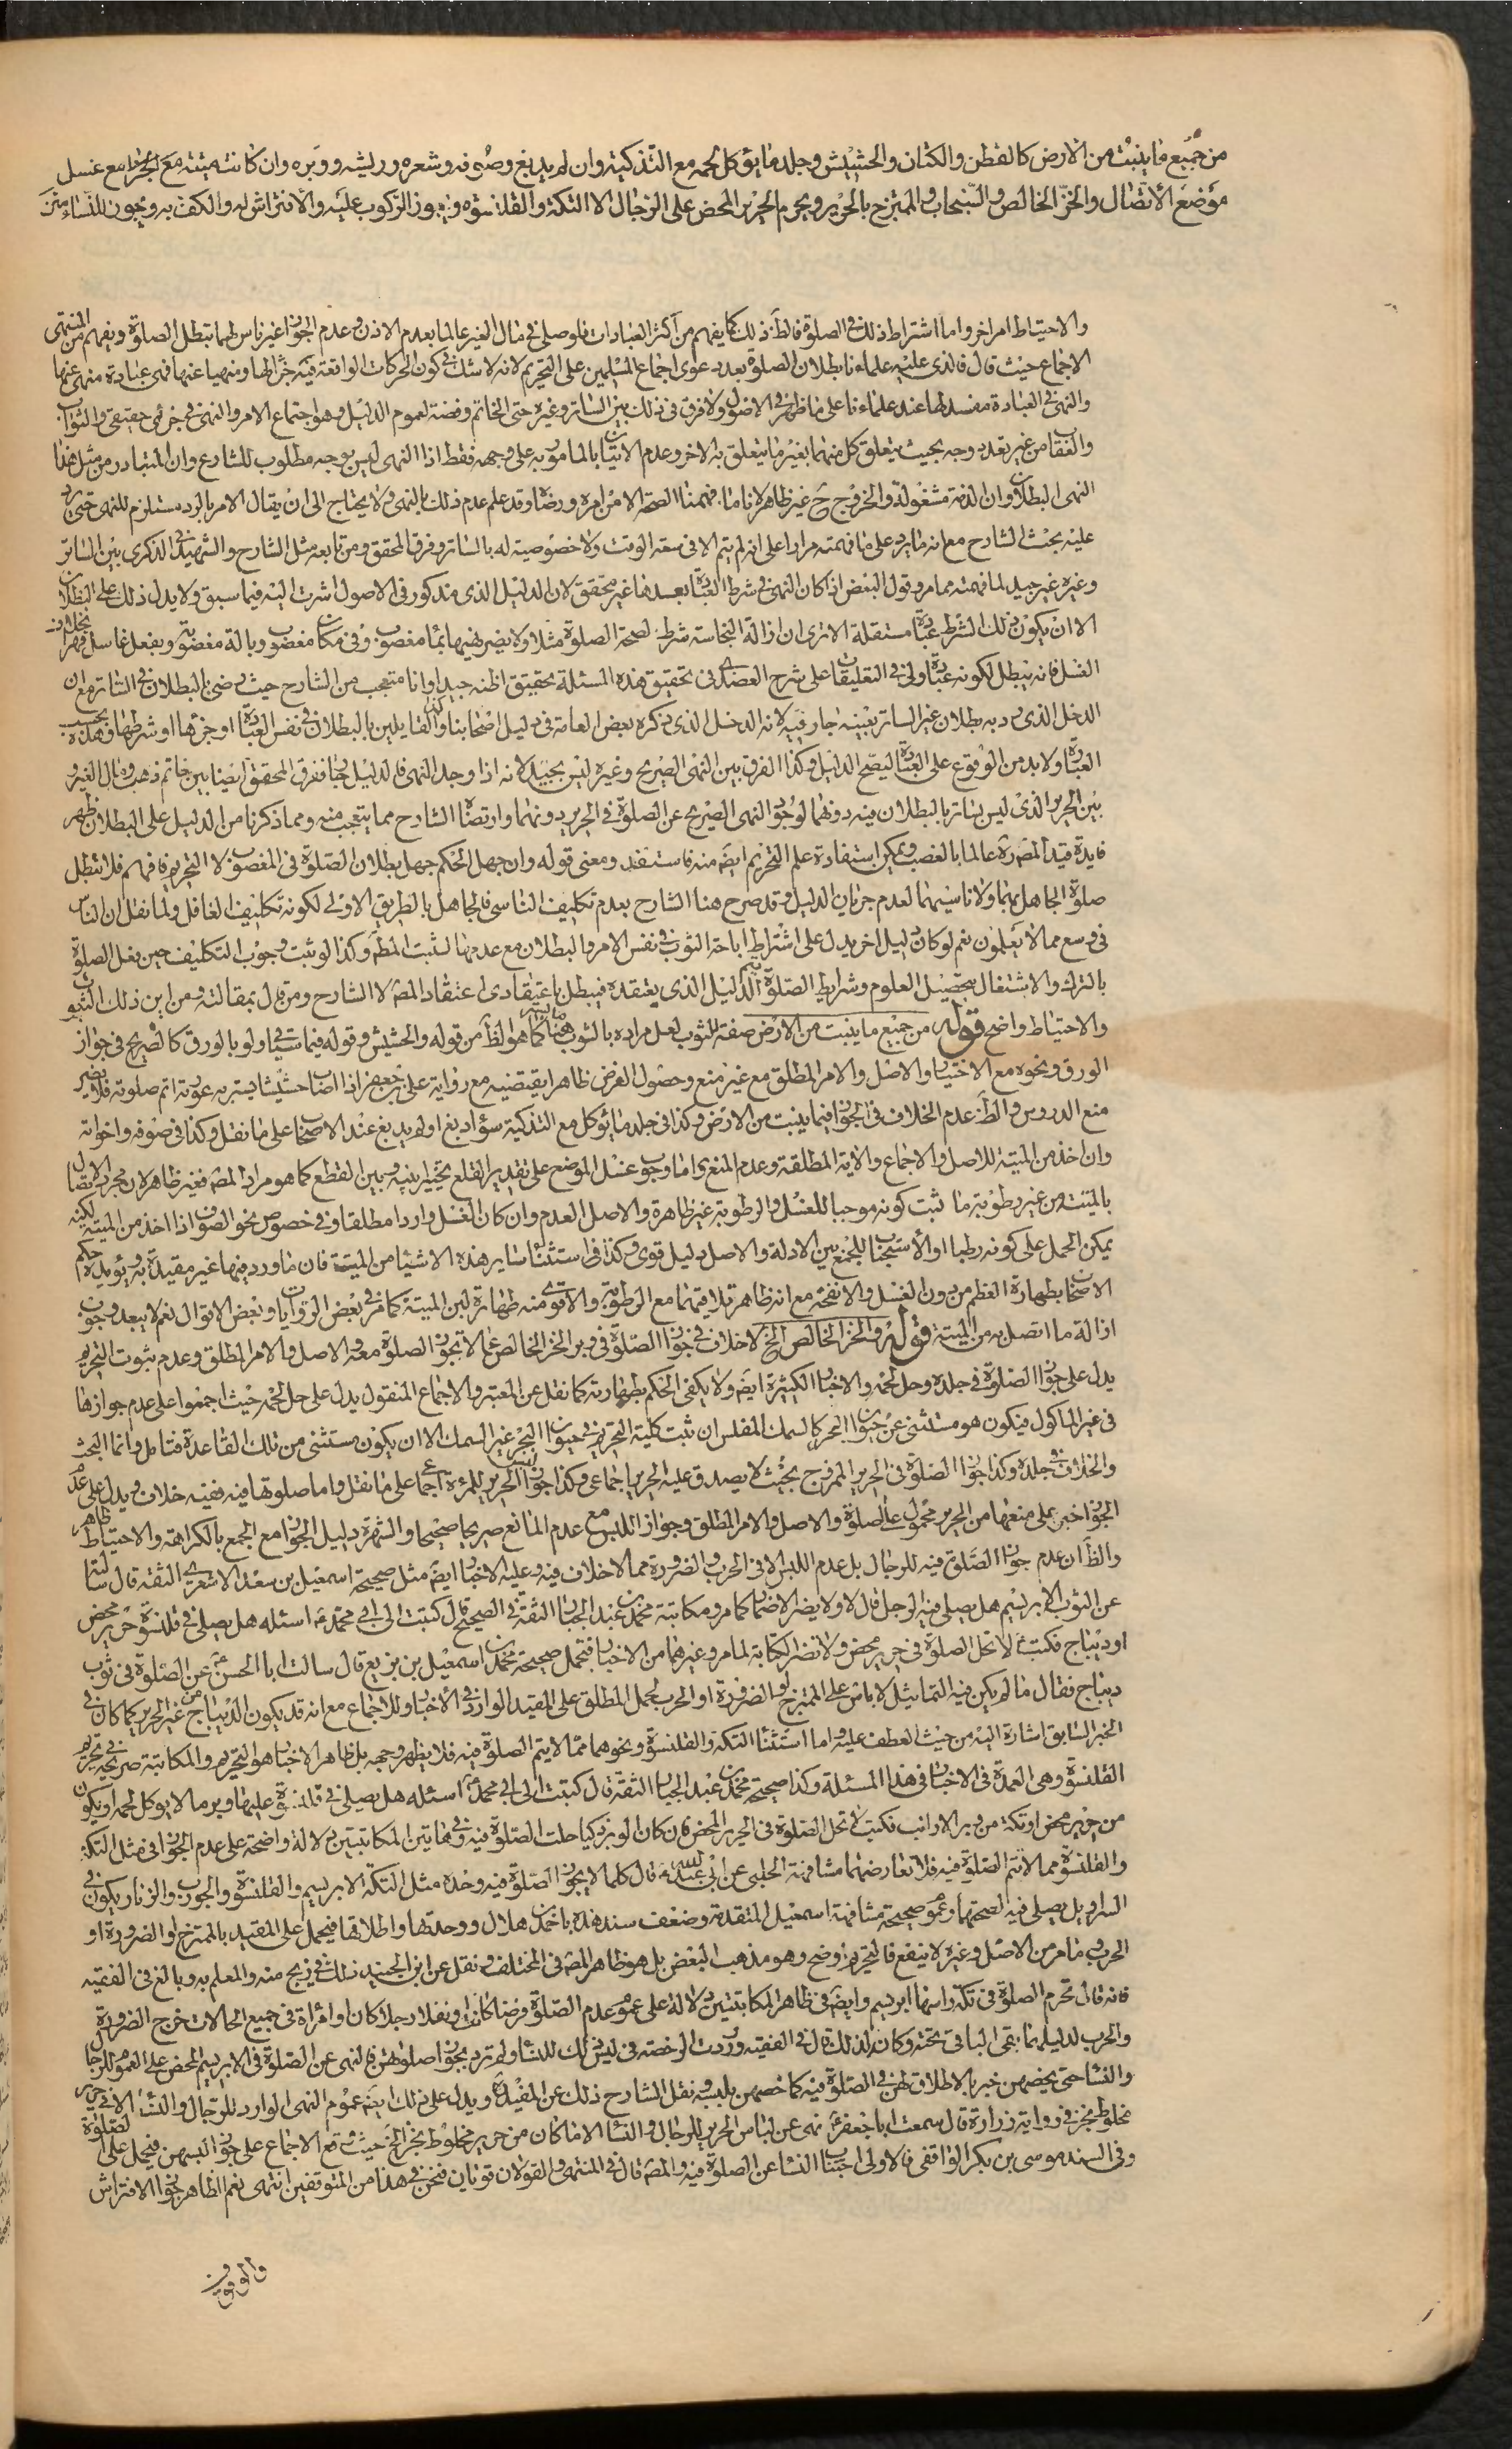 من جميع ما ينبت من الارض كالقطن والكتان والحشيش وجلد ما يؤكل لحمه مع التذكية وان لم يدبغ وصوفه وشعره وريشه ووبره وان كانت ميتة مع الجز او مع غسل
موضع الاتصال والخز الخالص والسنجاب والممتزج بالحرير ويحرم الحرير المحض على الرجال الا التكة والقلنسوة ويجوز الركوب عليه والافتراش له والكف به ويجوز للنساء
والاحتياط امر اخر واما اشتراط ذلك في الصلوة فالظ ذلك كما يفهم من اكثر العبادات فلو صلى في مال الغير عالما بعدم الاذن وعدم الجواز غير ناس لهما تبطل الصلوة ويفهم من المنتهى
الاجماع حيث قال فالذي عليه علماءنا بطلان الصلوة بعد دعوى اجماع المسلمين على التحريم لانه لا شك في كون الحركات الواقعة فيه جزأ لها ومنهيا عنها فهى عبادة منهى عنها
والنهى في العبادة مفسد لها عند علماءنا على ما ظهر في الاصول ولا فرق في ذلك بين الساتر وغيره حتى الخاتم وفضة لعموم الدليل وهو اجتماع الامر والنهى في جزئى حقيقى والثواب
والعقاب من غير تعدد وجه بحيث يتعلق كل منهما بغير ما يتعلق به الاخر وعدم الاتيان بالمامور به على وجهه فقط اذ النهى ليس بوجه مطلوب للشارع وان المتبادر من مثل هذا
النهى البطلان وان الذمة مشغولة والخروج ح غير ظاهر لانا ما فهمنا الصحة الا من امره ورضاه وقد علم عدم ذلك بالنهى ولا يحتاج الى ان يقال الامر بالرد مستلزم للنهى حتى يرد
عليه بحث الشارح مع انه ما يرد على ما فهمته مرارا على انه لم يتم الا في سعة الوقت ولا خصوصية له بالساتر وفرق المحقق ومن تابعه مثل الشارح والشهيد في الذكرى بين الساتر
وغيره غير جيد لما فهمته مما مر وقول البعض اذا كان النهى في شرط العبادة يفسدها غير محقق لان الدليل الذي مذكور في الاصول اشرت اليه فيما سبق ولا يدل ذلك على البطلان
الا ان يكون ذلك الشرط عبادة مستقلة الا ترى ان ازالة النجاسة شرط لصحة الصلوة مثلا ولا يضر نهيها بماء مغصوب وفي مكان مغصوب وبالة مغصوبة وبفعل غاسل قهرا بخلاف
الغسل فانه يبطل لكونه عبادة ولي في التعليقات على شرح العضدي في تحقيق هذه المسئلة تحقيق اظنه جيدا وانا متعجب من الشارح حيث رضى بالبطلان في الساتر مع ان
الدخل الذي رد به بطلان غير الساتر بعينه جار فيه لانه الدخل الذي ذكره بعض العامة في دليل اصحابنا والقايلين بالبطلان في نفس العبادة او جزءها او شرطها وهذه بحسب
العبادة ولا بد من الوقوع على العبادة ليصح الدليل وكذا الفرق بين النهى الصريح وغيره ليس بجيد لانه اذا وجد النهى فالدليل جار ففرق المحقق ايضا بين خاتم ذهب ومال الغير و
بين الحرير الذي ليس بساتر بالبطلان فيه دونهما لوجود النهى الصريح عن الصلوة في الحرير دونهما وارتضاء الشارح مما يتعجب منه ومما ذكرنا من الدليل على البطلان ظهر
فايدة قيد المصره عالما بالغصب ويمكن استفادة علم التحريم ايضه منه فاستفد ومعنى قوله وان جهل الحكم جهل بطلان الصلوة في المغصوب لا التحريم فافهم فلا تبطل
صلوة الجاهل بهما ولا ناسيهما لعدم جريان الدليل وقد صرح هنا الشارح بعدم تكليف الناسى فالجاهل بالطريق الاولى لكونه تكليف الغافل ولما نقل ان الناس
في وسع مما لا يعلمون نعم لو كان دليل اخر يدل على اشتراط اباحة الثوب في نفس الامر والبطلان مع عدمها لثبت المط وكذا لو ثبت وجوب التكليف حين فعل الصلوة
بالترك والاشتغال بتحصيل العلوم وشرايط الصلوة يتم الدليل الذي يعتقده فيبطل باعتقادى اعتقاد المصه لا الشارح ومن قال بمقالته ومن اين ذلك الثبوت
والاحتياط واضح قوله من جميع ما ينبت من الارض صفة للثوب لعل مراده بالثوب هنا كما هو الظ من قوله والحشيش وقوله فيما سياتى ولو بالورق كالصريح في جواز
الورق ونحوه مع الاختيار والاصل والامر المطلق مع غير منع وحصول الغرض ظاهرا يقتضيه مع رواية على بن جعفر اذا اصاب حشيشا يستر به عورته اتم صلوته فلا يضر
منع الدروس والظ عدم الخلاف في الجواز فيما ينبت من الارض وكذا في جلد ما يؤكل مع التذكية سواء دبغ او لم يدبغ عند الاصحاب على ما نقل وكذا في صوفه واخواته
وان اخذ من الميتة للاصل والاجماع والاية المطلقة وعدم المنع واما وجوب غسل الموضع على تقدير القلع تخييرا بينه وبين القطع كما هو مراد المصه فغير ظاهر لان مجرد الاتصال
بالميتة من غير رطوبة ما ثبت كونه موجبا للغسل والرطوبة غير ظاهرة والاصل العدم وان كان الغسل واردا مطلقا وفي خصوص نحو الصوف اذا اخذ من الميتة لكنه
يمكن الحمل على كونه رطبا او الاستحباب للجمع بين الادلة والاصل دليل قوى وكذا في استثناء ساير هذه الاشياء من الميتة فان ما ورد فيها غير مقيدة به ويؤيده حكم
الاصحاب بطهارة العظم من دون الغسل والانفحة مع انه ظاهر تلاقيهما مع الرطوبة والاقوى منه طهارة لبن الميتة كما في بعض الروايات وبعض الاقوال نعم لا يبعد وجوب
ازالة ما اتصل به من الميتة قوله والخز الخالص الخ لا خلاف في جواز الصلوة في وبر الخز الخالص عما لا تجوز الصلوة معه والاصل والامر المطلق وعدم ثبوت التحريم
يدل على جواز الصلوة في جلده وحل لحمه والاخبار الكثيرة ايضه ولا يكفى الحكم بطهارته كما نقل عن المعتبر والاجماع المنقول يدل على حل لحمه حيث اجمعوا على عدم جوازها
في غير الماكول فيكون هو مستثنى عن حيوان البحر كالسمك المفلس ان ثبت كلية التحريم في حيوان البحر غير السمك الا ان يكون مستثنى من تلك القاعدة فتامل وانما البحث
والخلاف في جلده وكذا جواز الصلوة في الحرير الممزوج بحيث لا يصدق عليه الحرير اجماعى وكذا جواز لبس الحرير للمرءة اجماعى على ما نقل واما صلوتها فيه ففيه خلاف ويدل على عدم
الجواز خبر على منعها من الحرير محمول على الصلوة والاصل والامر المطلق وجواز اللبس مع عدم المانع صريحا صحيحا والشهرة دليل الجواز مع الجمع بالكراهة والاحتياط ظاهر
والظ ان عدم جواز الصلوة فيه للرجال بل عدم اللبس الا في الحرب والضرورة مما لا خلاف فيه وعليه الاخبار ايضه مثل صحيحة اسمعيل بن سعد الاشعري الثقة قال سالته
عن الثوب الابريسم هل يصلي فيه الرجل قال لا ولا يضر الاضمار كما مر ومكاتبة محمد بن عبد الجبار الثقة في الصحيح قال كتبت الى ابي محمد ع اسئله هل يصلى في قلنسوة حرير محض
او ديباج فكتب ع لا تحل الصلوة في حرير محض ولا تضر الكتابة لما مر وغيرهما من الاخبار فتحمل صحيحة محمد بن اسمعيل بن بزيع قال سالت ابا الحسن ع عن الصلوة في ثوب
ديباج فقال ما لم يكن فيه التماثيل لا باس على الممتزج او الضرورة او الحرب لحمل المطلق على المقيد الوارد في الاخبار وللاجماع مع انه قد يكون الديباج من غير الحرير كما كان في
الخبر السابق اشارة اليه من حيث العطف عليه واما استثناء التكة والقلنسوة ونحوهما مما لا يتم الصلوة فيه فلا يظهر وجهه بل ظاهر الاخبار هو التحريم والمكاتبة صريحة في تحريم
القلنسوة وهى العمدة في الاخبار في هذا المسئلة وكذا صحيحة محمد بن عبد الجبار الثقة قال كتبت الى ابي محمد ع اسئله هل يصلى في قلنسوة عليها وبر ما لا يؤكل لحمه او تكون
من حرير محض او تكة من وبر الارانب فكتب لا تحل الصلوة في الحرير المحض فان كان الوبر ذكيا حلت الصلوة فيه وفي هاتين المكاتبتين دلالة واضحة على عدم الجواز في مثل التكة
والقلنسوة مما لا تتم الصلوة فيه فلا تعارضهما مشافهة الحلبى عن ابى عبد الله ع قال كلما لا يجوز الصلوة فيه وحده مثل التكة الابريسم والقلنسوة والجورب والزنار يكون في
السراويل يصلى فيه لصحتها وعموم صحيحة مشافهة اسمعيل المتقدمة وضعف سند هذه باحمد بن هلال ووحدتها واطلاقها فيحمل على المقيد بالممتزج او الضرورة او
الحرب وما مر من الاصل وغيره لا ينفع فالتحريم اوضح وهو مذهب البعض بل هو ظاهر المصه في المختلف ونقل عن ابن الجنيد ذلك في زيج منه والمعلم به وبالغ في الفقيه
فانه قال تحرم الصلوة في تكة راسها ابريسم وايضه في ظاهر المكاتبتين دلالة على عموم عدم الصلوة فرضا كانت او نفلا رجلا كان او امراة في جميع الحالات خرج الضرورة
والحرب لدليلهما بقى الباقى تحته وكان لذلك قال في الفقيه وردت الرخصة في لبس ذلك للنساء ولم ترد بجواز صلوتهن فالنهى عن الصلوة في الابريسم المحض على العموم للرجال
والنساء حتى يخصهن خبر بالاطلاق لهن في الصلوة فيه كما خصهن بلبسه ونقل الشارح ذلك عن المفيد ره ويدل على ذلك ايضه عموم النهى الوارد للرجال والنساء الا في حرير
مخلوط بخز في رواية زرارة قال سمعت ابا جعفر ع نهى عن لباس الحرير للرجال والنساء الا ما كان من حرير مخلوط بخز الخ حيث وقع الاجماع على جواز لبسهن فيحمل على الصلوة
وفي السند موسى بن بكر الواقفى فالاولى اجتناب النساء عن الصلوة فيه والمصه قال في المنتهى والقولان قويان فنحن في هذا من المتوقفين انتهى نعم الظاهر جواز الافتراش
والوقوف